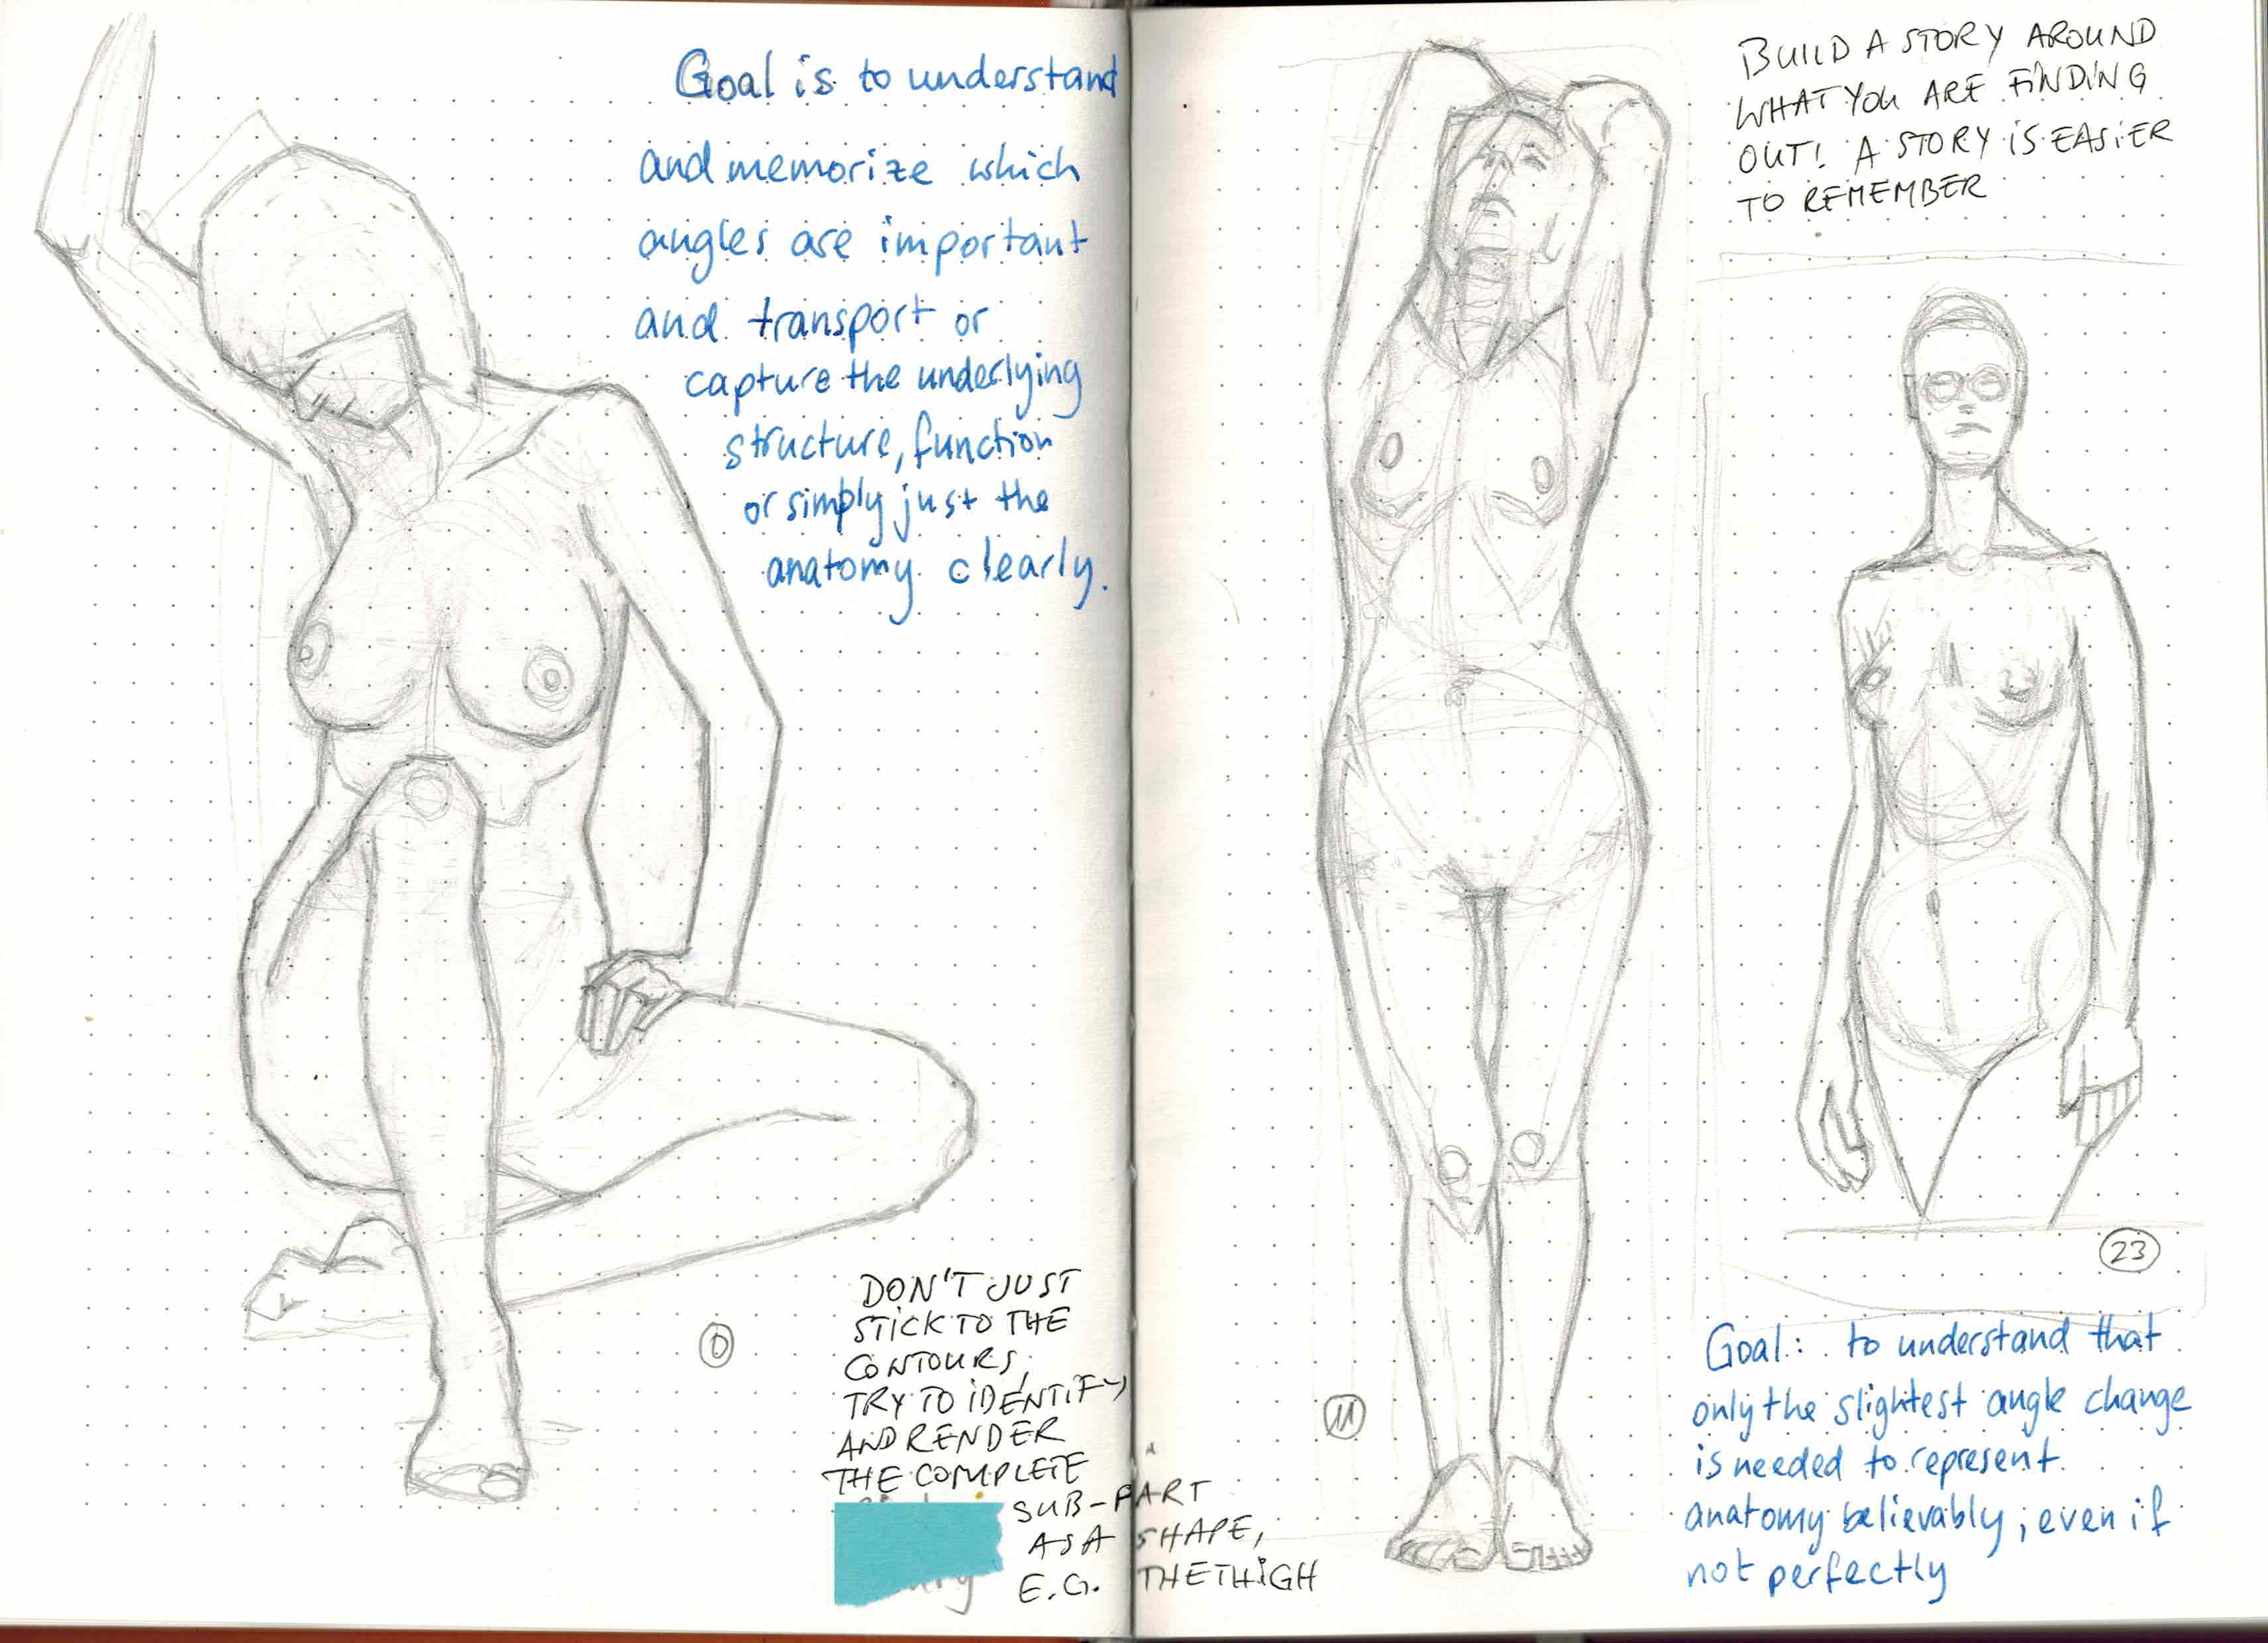 Goal is to understand
and memorize which
angles are important
and transport or
capture the underlying
structure, function
or simply just the
anatomy clearly.
DON'T JUST
STICK TO THE
CONTOURS,
TRY TO IDENTIFY
AND RENDER
THE COMPLETE
SUB-PART
AS A SHAPE,
E.G. THE THIGH
0
BUILD A STORY AROUND
WHAT YOU ARE FINDING
OUT! A STORY IS EASIER
TO REMEMBER
11
23
Goal: to understand that
only the slightest angle change
is needed to represent
anatomy believably; even if
not perfectly